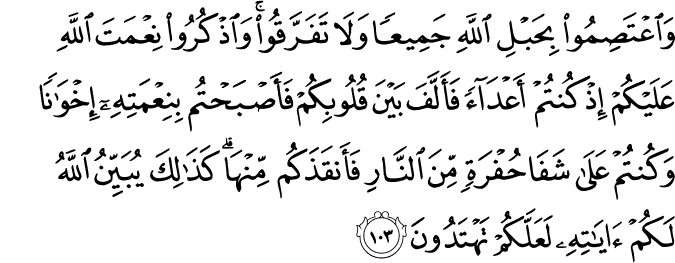 وَٱعۡتَصِمُواْ بِحَبۡلِ ٱللَّهِ جَمِيعٗا وَلَا تَفَرَّقُواْۚ وَٱذۡكُرُواْ نِعۡمَتَ ٱللَّهِ
عَلَيۡكُمۡ إِذۡ كُنتُمۡ أَعۡدَآءٗ فَأَلَّفَ بَيۡنَ قُلُوبِكُمۡ فَأَصۡبَحۡتُم بِنِعۡمَتِهِۦٓ إِخۡوَٰنٗا
وَكُنتُمۡ عَلَىٰ شَفَا حُفۡرَةٖ مِّنَ ٱلنَّارِ فَأَنقَذَكُم مِّنۡهَاۗ كَذَٰلِكَ يُبَيِّنُ ٱللَّهُ
لَكُمۡ ءَايَٰتِهِۦ لَعَلَّكُمۡ تَهۡتَدُونَ ١٠٣